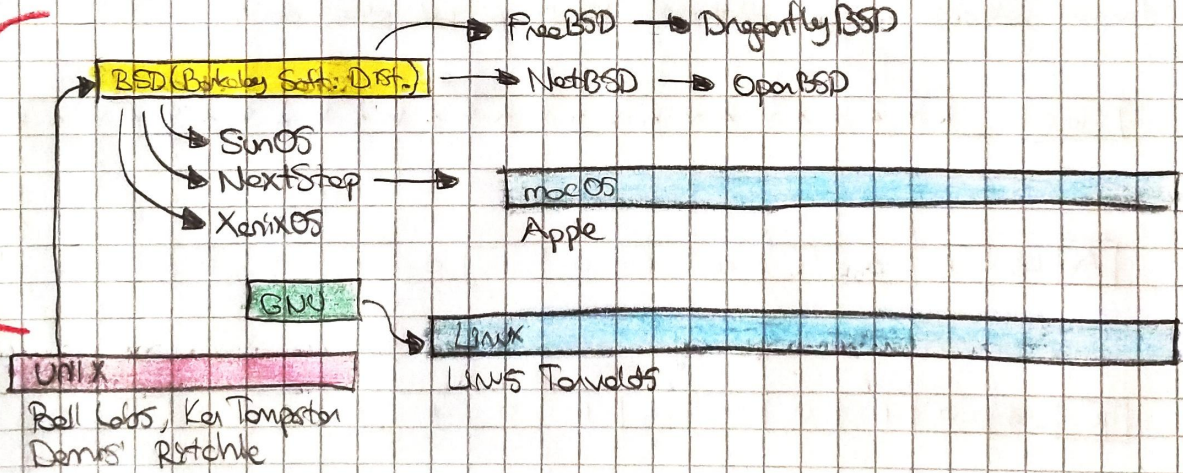 FreeBSD → DragonflyBSD
BSD (Berkeley Soft. Dist.) → NetBSD → OpenBSD
SunOS
NextStep → macOS
XenixOS
Apple
GNU
Linux
UNIX
Linus Torvalds
Bell Labs, Ken Tompston
Denis Ritchie